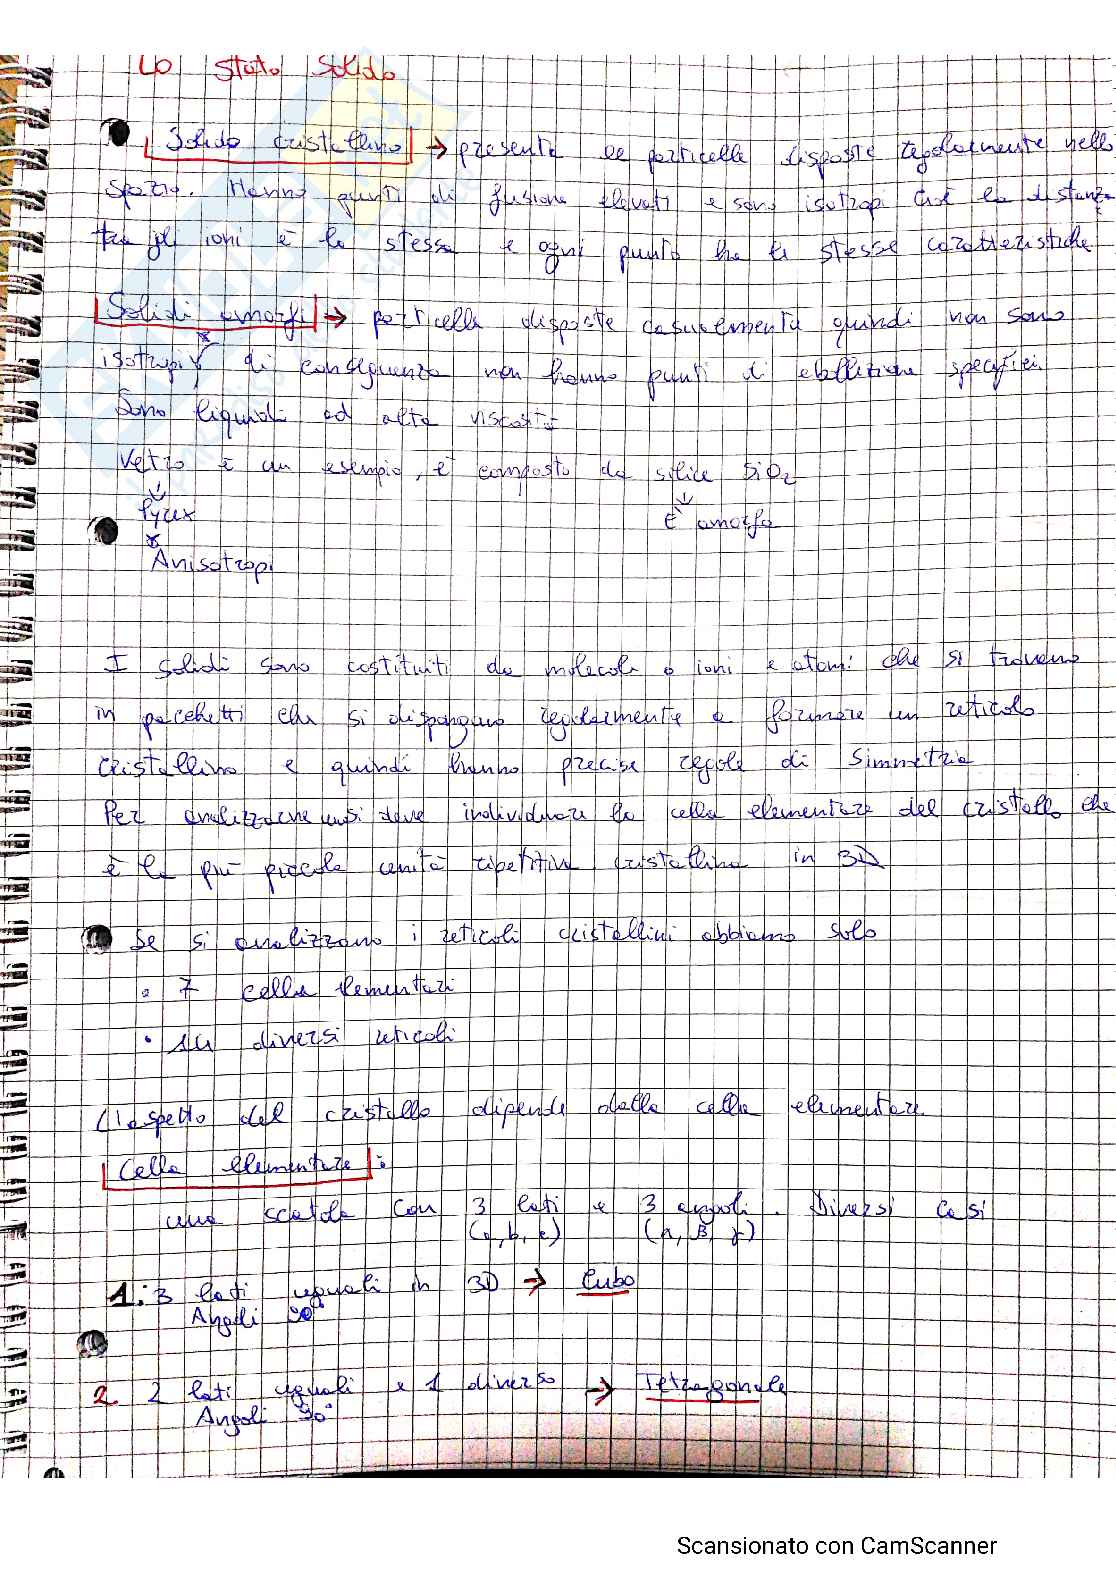 Lo stato solido
Solido cristallino → presenta le particelle disposte regolarmente nello
spazio. Hanno punti di fusione elevati e sono isotropi cioè la distanza
tra gli ioni è la stessa e ogni punto ha le stesse caratteristiche
Solidi amorfi → particelle disposte casualmente quindi non sono
isotropi * di conseguenza non hanno punti di ebollizione specifici.
Sono liquidi ad alta viscosità
Vetro è un esempio, è composto da silice SiO2
↓ ↓
Pyrex È amorfa
* Anisotropi
I solidi sono costituiti da molecole o ioni e atomi che si trovano
in pacchetti che si dispongono regolarmente a formare un reticolo
cristallino e quindi hanno precise regole di simmetria
Per analizzarne uno si deve individuare la cella elementare del cristallo che
è la più piccola unità ripetitiva cristallina in 3D
Se si analizzano i reticoli cristallini abbiamo solo
• 7 celle elementari
• 14 diversi reticoli
L'aspetto del cristallo dipende dalla cella elementare
Cella elementare :
una scatola con 3 lati e 3 angoli. Diversi casi
(a, b, c) (α, β, γ)
1. 3 lati uguali in 3D → Cubo
Angoli 90°
2. 2 lati uguali e 1 diverso → Tetragonale
Angoli 90°
Scansionato con CamScanner